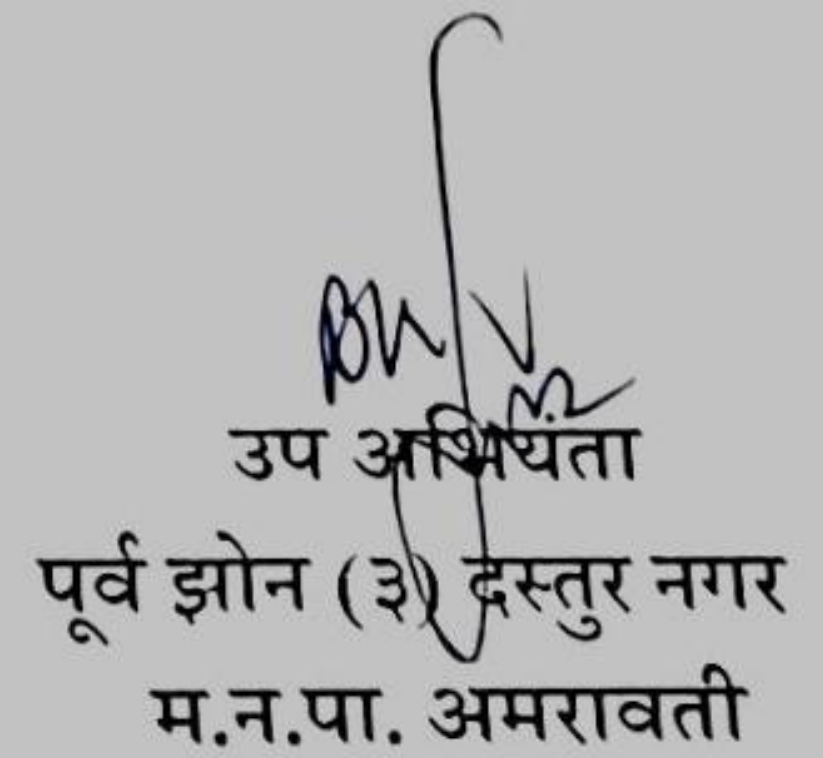 उप अभियंता
पूर्व झोन (३) दस्तुर नगर
म.न.पा. अमरावती